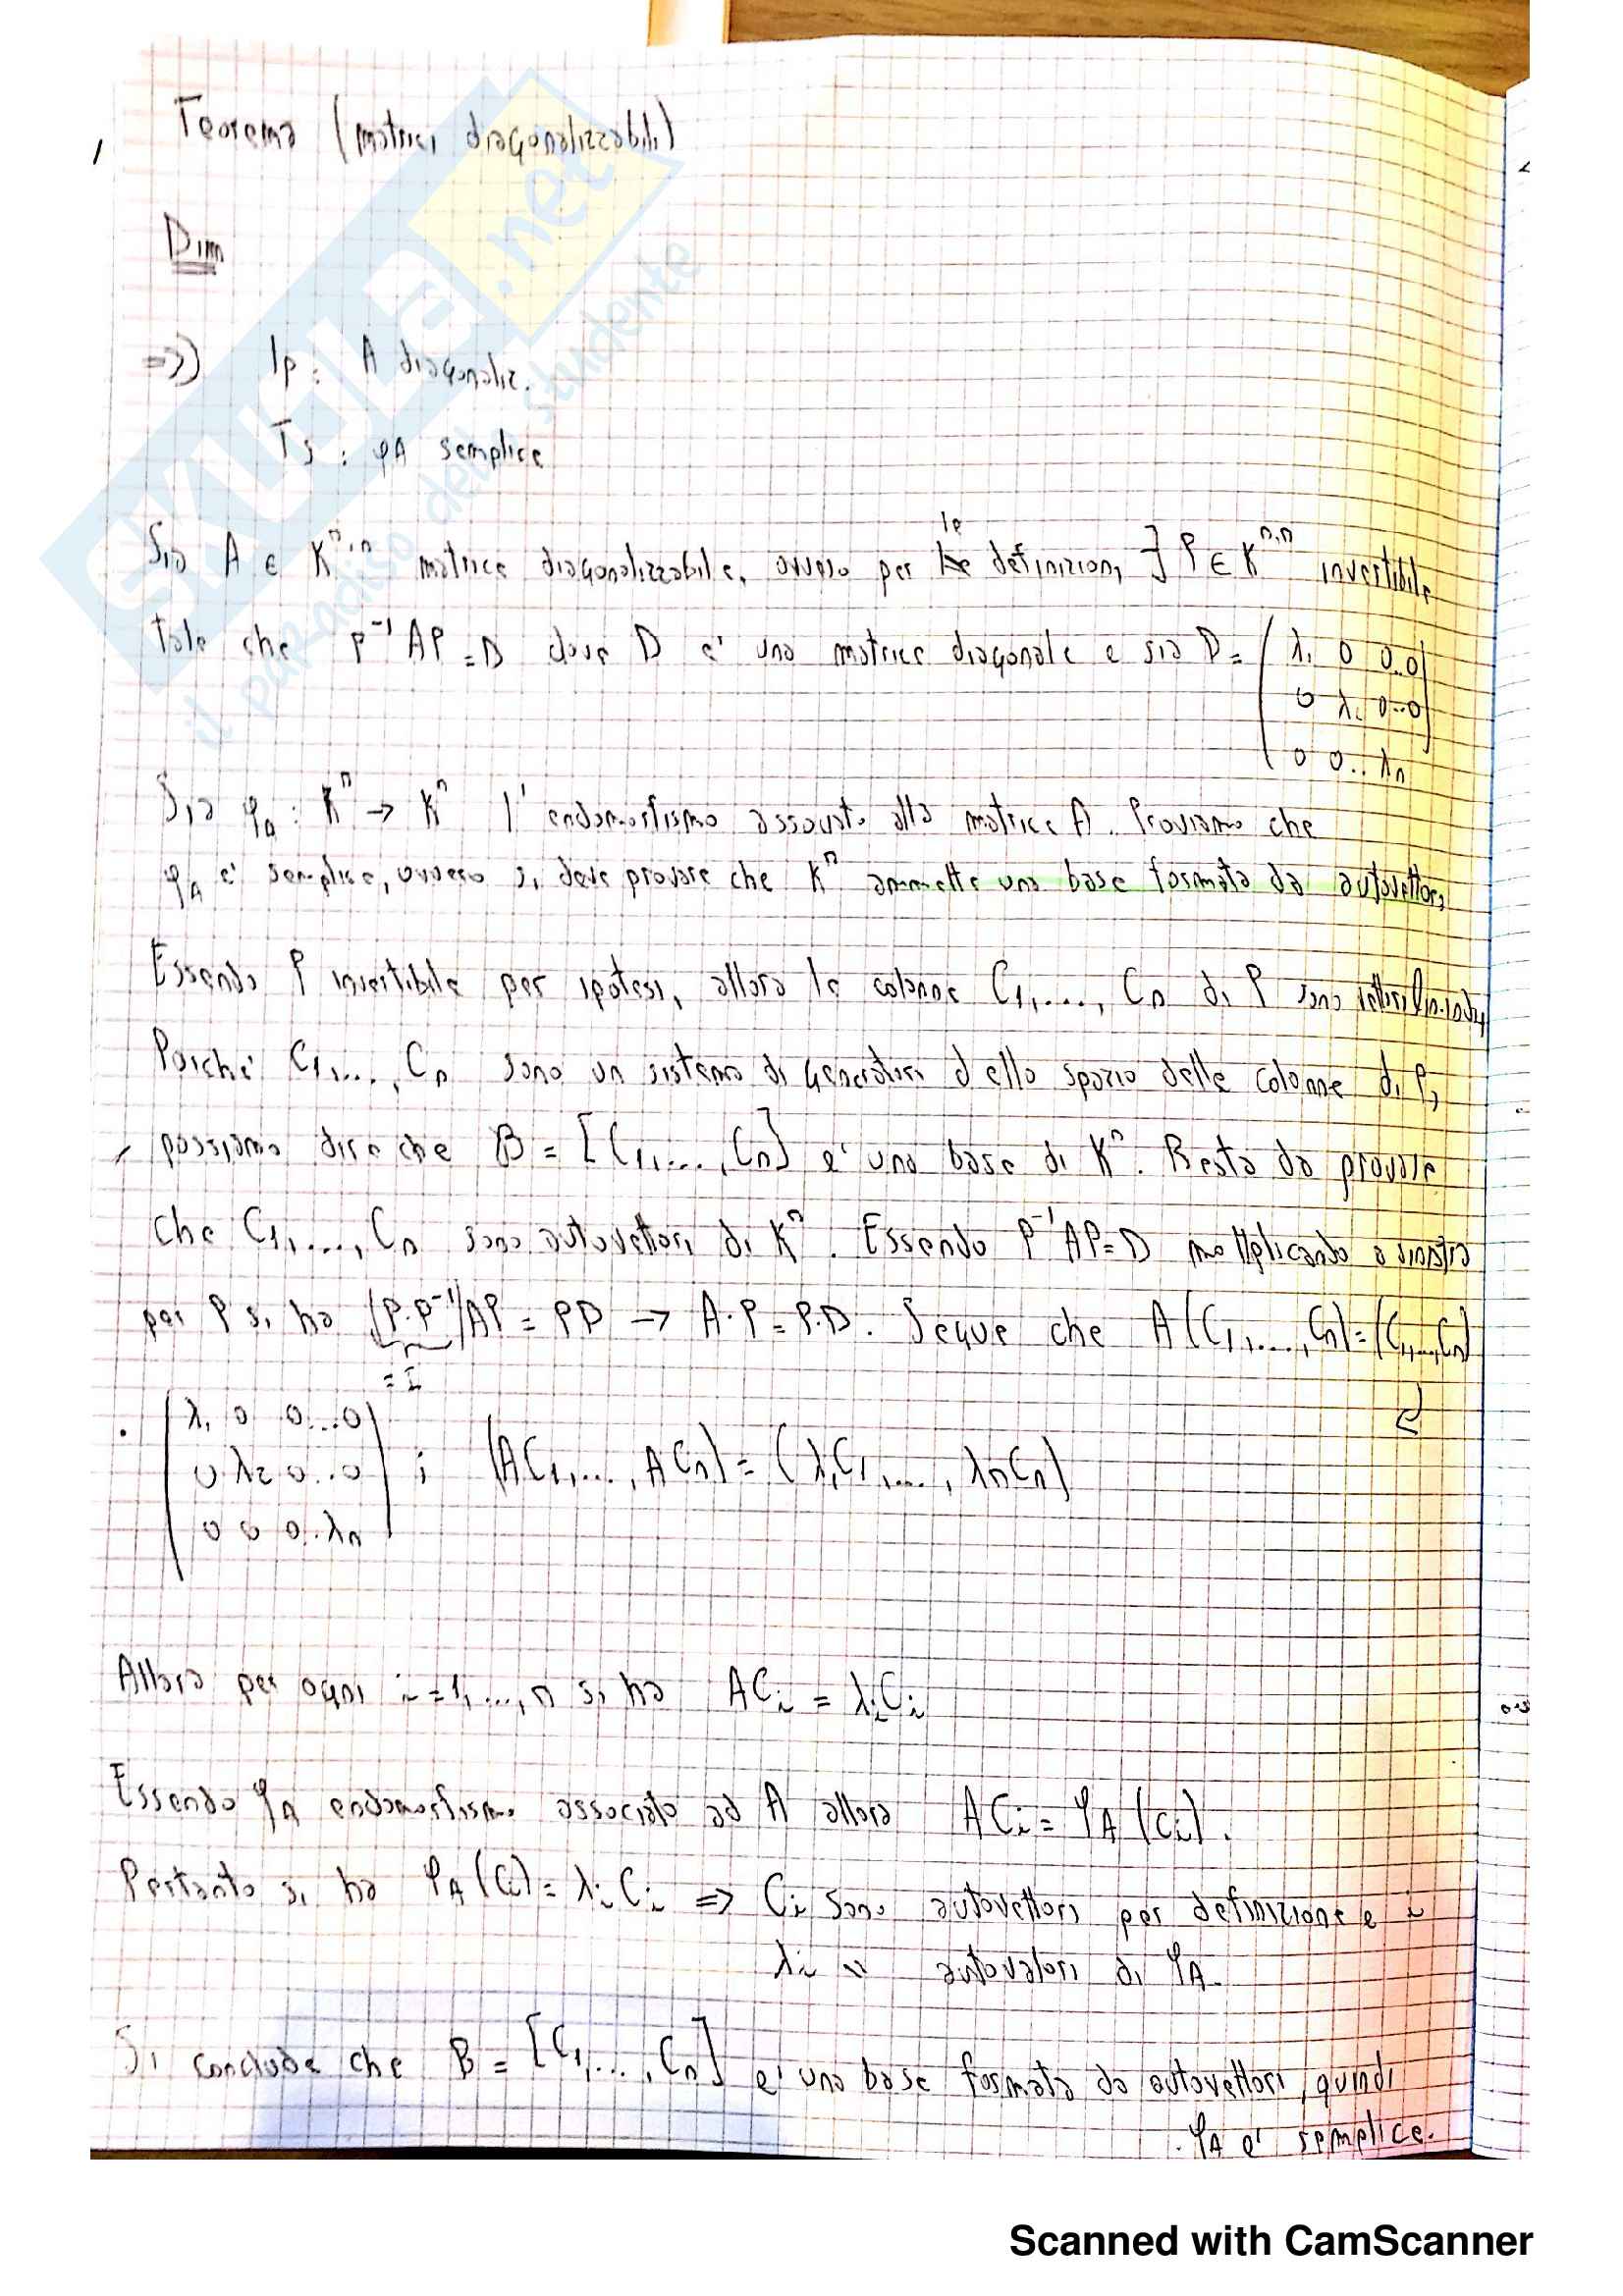 Teorema (matrici diagonalizzabili)
Dim
=>)) Ip: A diagonaliz.
Ts: φA semplice
Sia A ∈ K^n,n matrice diagonalizzabile, ovvero per le definizioni ∃ P ∈ K^n,n invertibile
tale che P^-1 AP = D dove D e' una matrice diagonale e sia D = (λ1 0 0..0
0 λ2 0..0
0 0..λn)
Sia φA: K^n → K^n l'endomorfismo associato alla matrice A. Proviamo che
φA e' semplice, ovvero si deve provare che K^n ammette una base formata da autovettori
Essendo P invertibile per ipotesi, allora le colonne C1,...., Cn di P sono vettori lin. indip
Poiche' C1,...,Cn sono un sistema di generatori dello spazio delle colonne di P,
possiamo dire che B = [C1,...,Cn] e' una base di K^n. Resta da provare
che C1,...,Cn sono autovettori di K^n. Essendo P^-1 AP = D moltplicando a sinistra
per P si ha (P.P^-1)AP = PD → A.P = P.D. Segue che A(C1,...,Cn) = (C1,...,Cn)
= I
. (λ1 0 0...0
0 λ2 0..0
0 0 0..λn) ; (AC1,...,ACn) = (λ1C1,...., λnCn)
Allora per ogni i=1,...,n si ha ACi = λiCi
Essendo φA endomorfismo associato ad A allora ACi = φA(Ci).
Pertanto si ha φA(Ci) = λiCi => Ci sono autovettori per definizione e i
λi " autovalori di φA.
Si conclude che B = [C1,...,Cn] e' una base formata da autovettori, quindi
φA e' semplice.
SKUOLA.net
il paradiso dello studente
Scanned with CamScanner